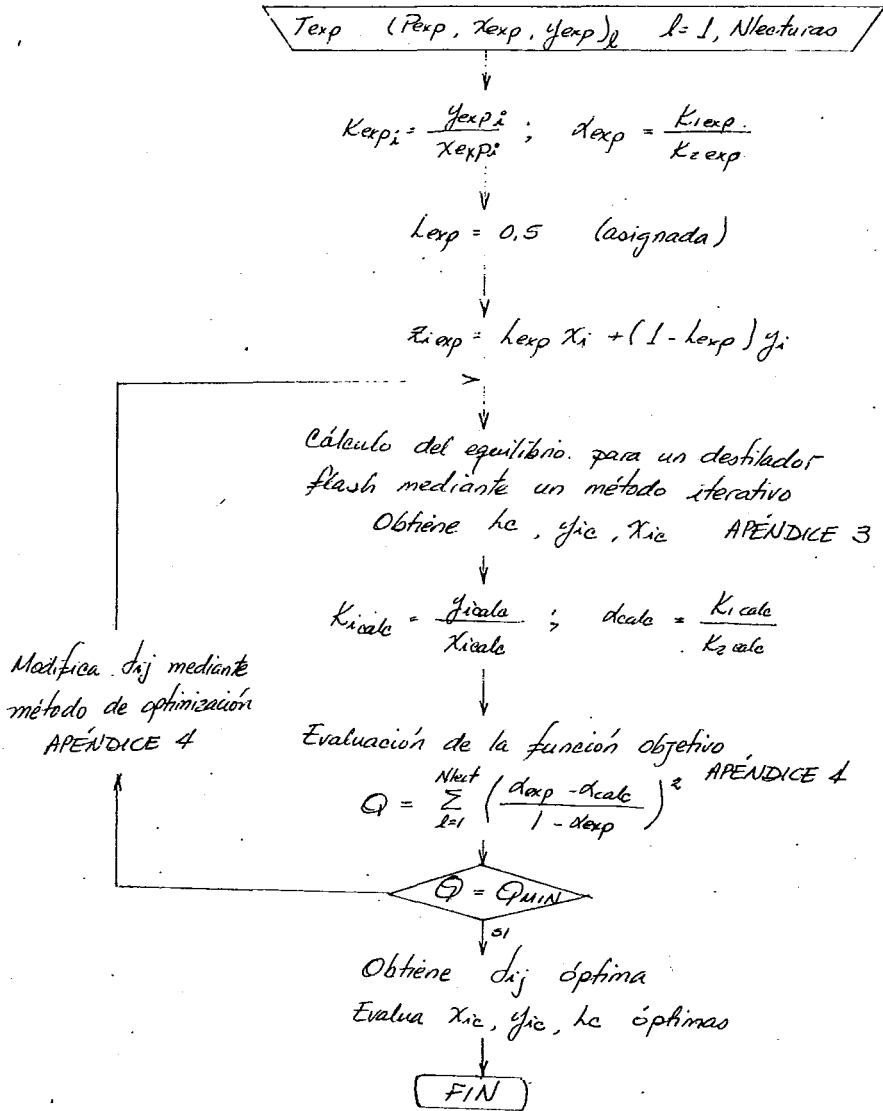 Texp (Pexp, xexp, yexp)l l = 1, Nlecturas
Kexpi = yexpi / xexpi ; αexp = K1exp. / K2exp
Lexp = 0.5 (asignada)
ziexp = Lexp xi + (1 - Lexp) yi
Cálculo del equilibrio. para un destilador
flash mediante un método iterativo
Obtiene Lc, yic, xic APÉNDICE 3
Kicalc = yicalc / xicalc ; αcalc = K1calc / K2calc
Modifica δij mediante
método de optimización
APÉNDICE 4
Evaluación de la función objetivo
APÉNDICE 4
Q = Σ l=1 Nlect ( (αexp - αcalc) / (1 - αexp) )²
Q = QMIN
SI
Obtiene δij óptima
Evalua xic, yic, Lc óptimas
FIN